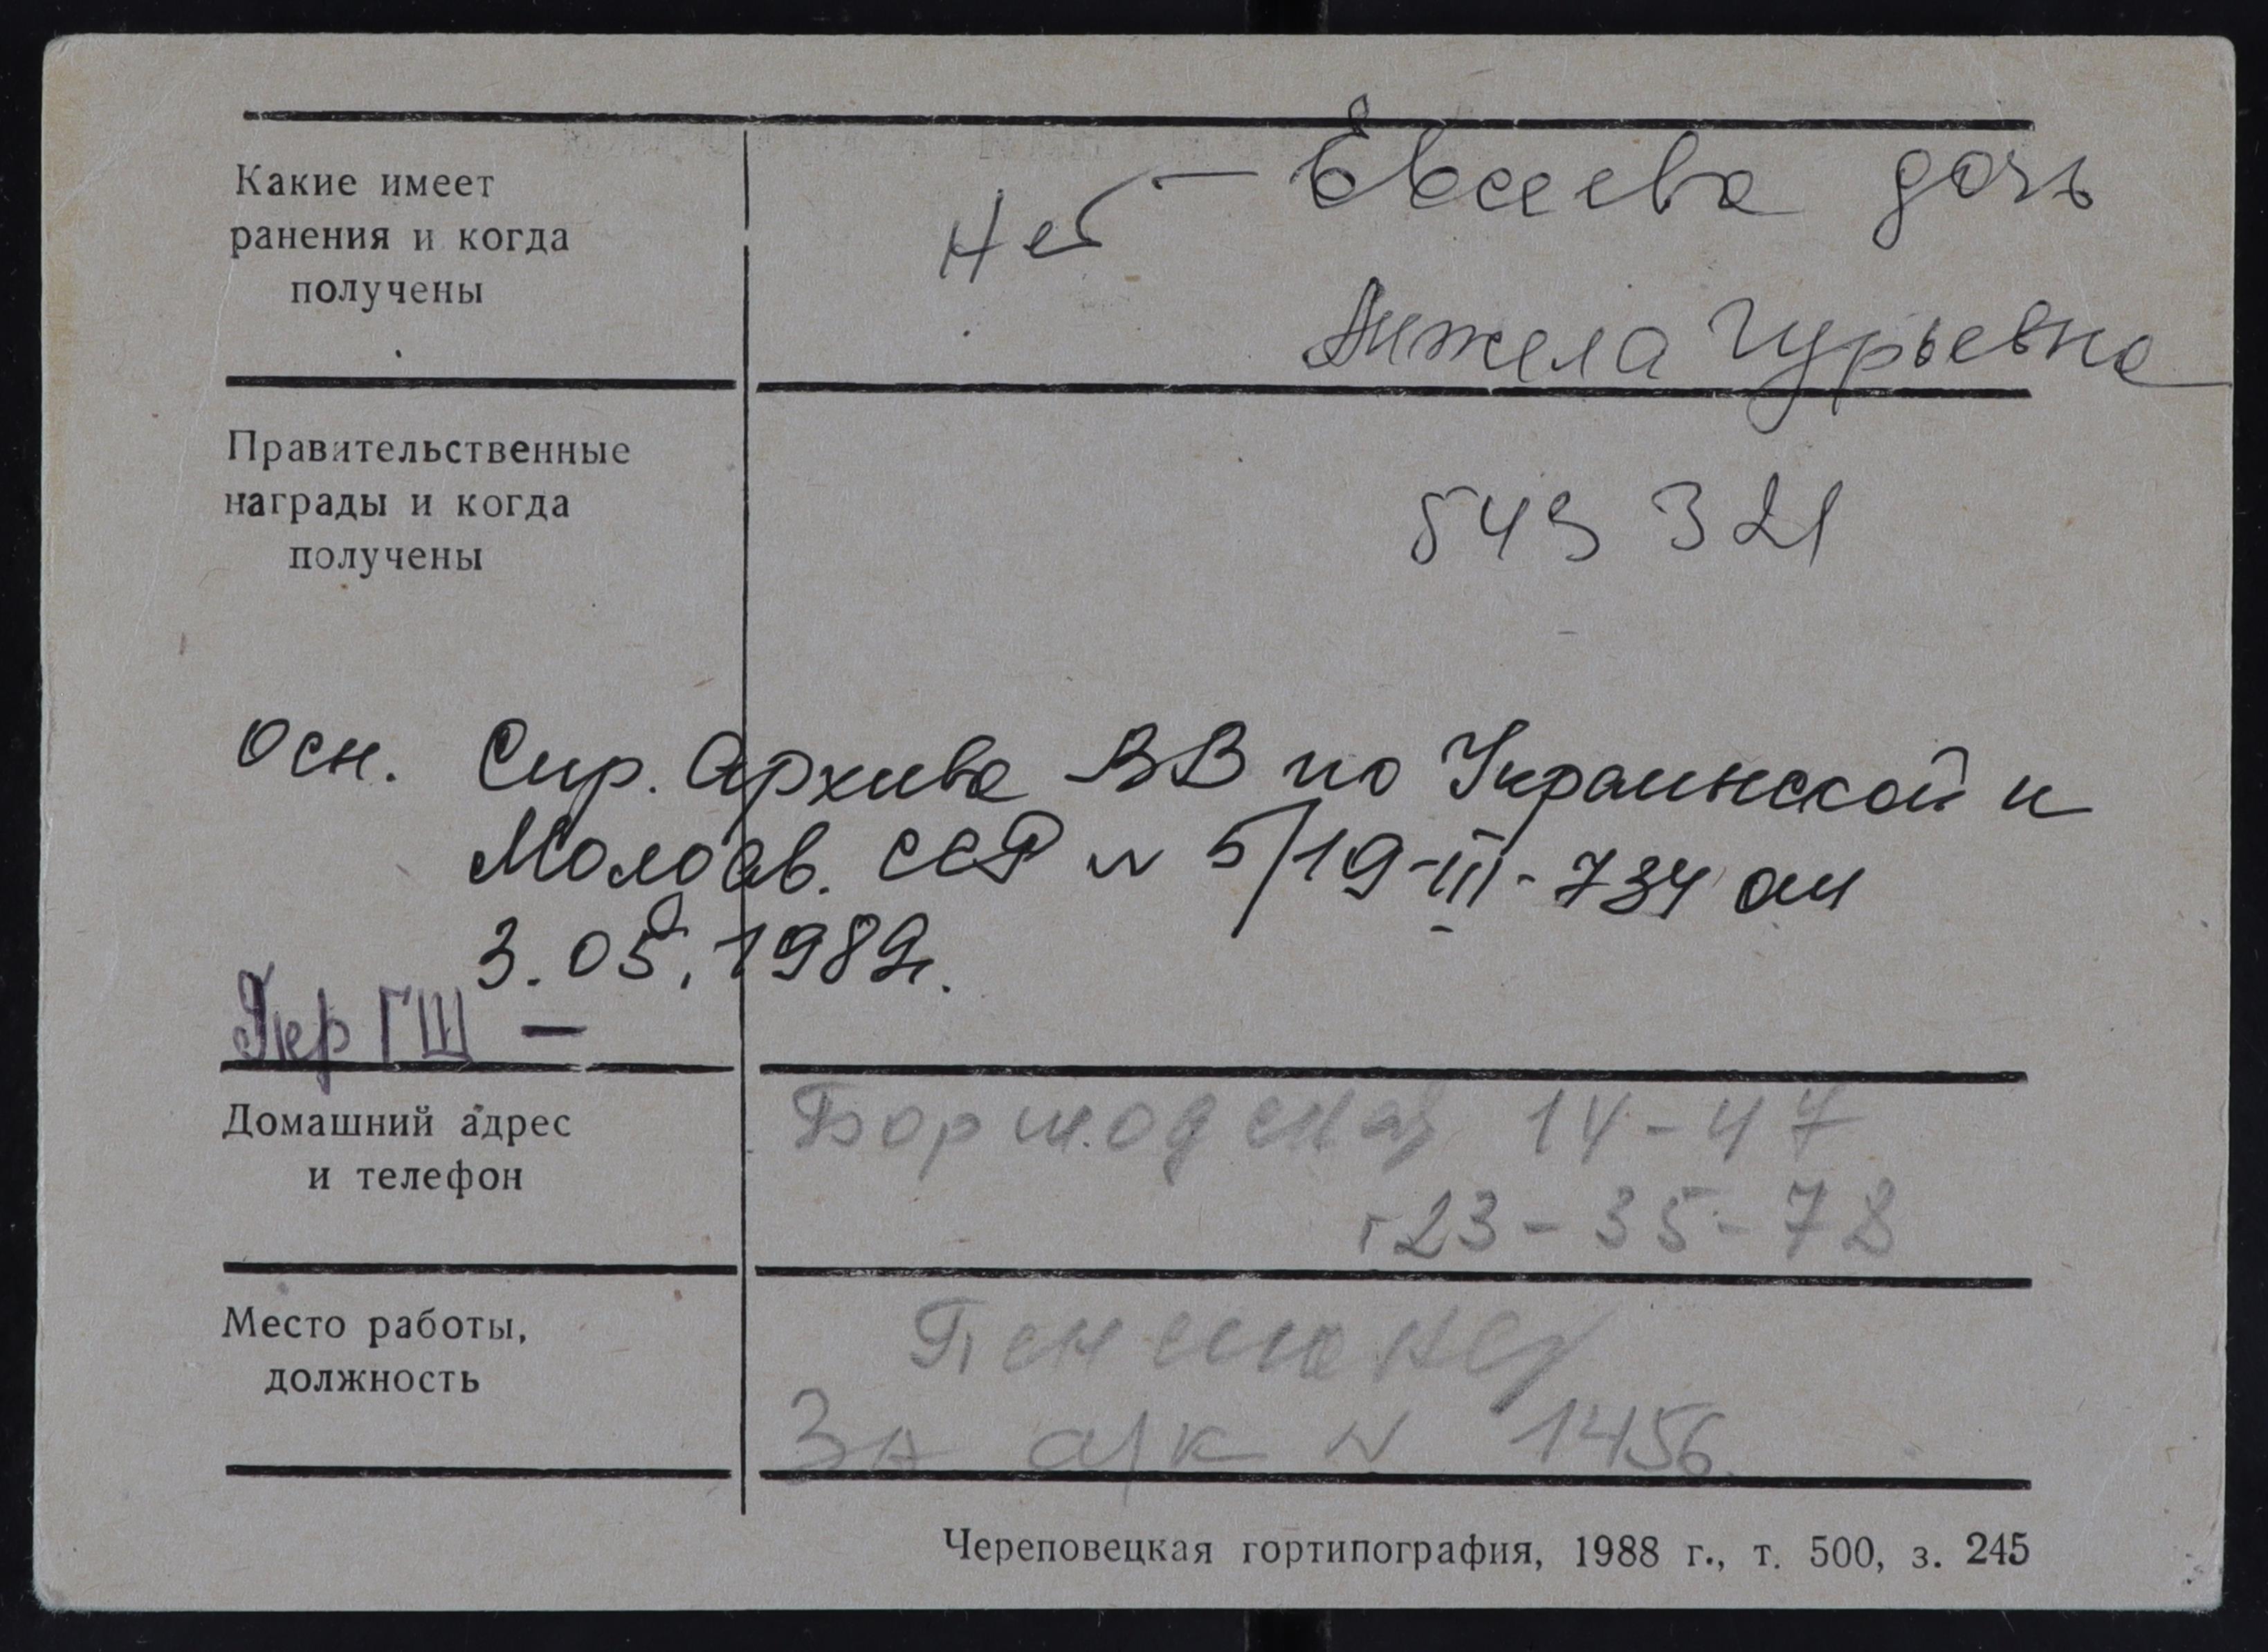 Какие имеет
ранения и когда
получены
Нет — Евсеева дочь
Анжела Гурьевна
Правительственные
награды и когда
получены
549 321
Осн. Спр. Архива ВВ по Украинской и
Молдав. ССР № 5/19-III-734 от
3.05.1989г.
ГШ —
Домашний адрес
и телефон
Боршодская 14-47
т 23-35-78
Место работы,
должность
Пенсионер
За а/к № 1456
Череповецкая гортипография, 1988 г., т. 500, з. 245